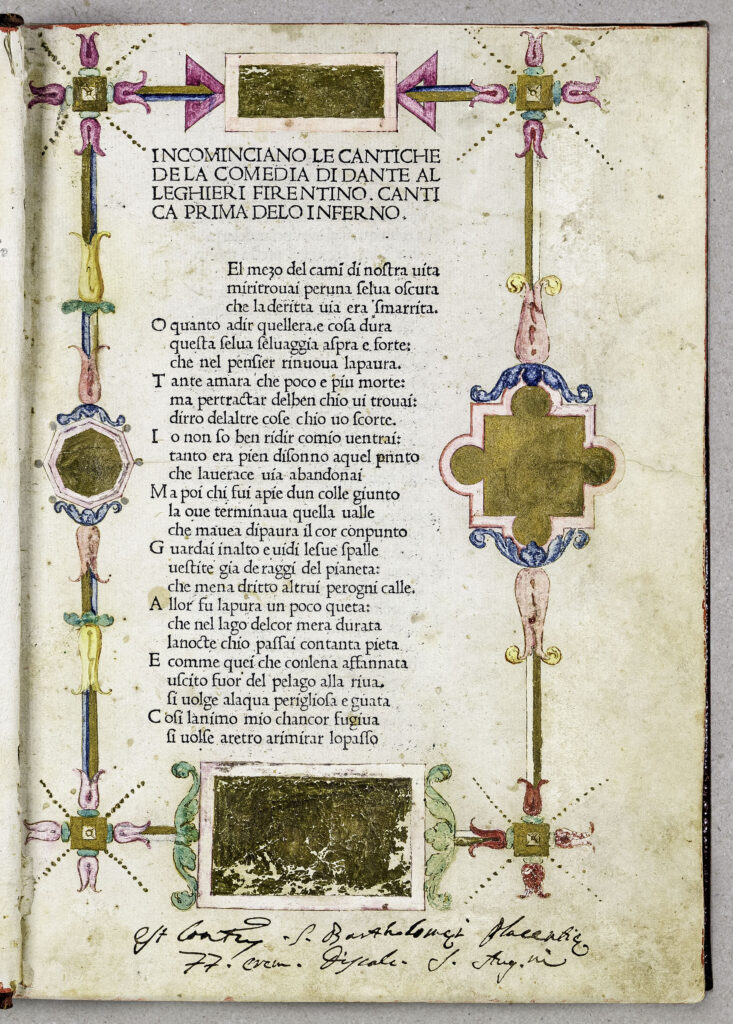 INCOMINCIANO LE CANTICHE
DE LA COMEDIA DI DANTE AL
LEGHIERI FIRENTINO. CANTI
CA PRIMA DELO INFERNO.
El mezo del cami͂ di noſtra uita
miritrouai peruna ſelua oſcura
che laderitta uia era ſmarrita.
O quanto adir quellera.e coſa dura
queſta ſelua ſeluaggia aſpra e forte:
che nel penſier rinuoua lapaura.
T ante amara che poco e piu morte:
ma pertractar delben chio ui trouai:
dirro delaltre coſe chio uo ſcorte.
I o non ſo ben ridir comio uentrai:
tanto era pien diſonno aquel punto
che lauerace uia abandonai
M a poi chi fui apie dun colle giunto
la oue terminaua quella ualle
che mauea dipaura il cor conpunto
G uardai inalto e uidi leſue ſpalle
ueſtite gia de raggi del pianeta:
che mena dritto altrui perogni calle.
A llor fu lapura un poco queta:
che nel lago delcor mera durata
lanocte chio paſſai contanta pieta
E comme quei che conlena affannata
uſcito fuor del pelago alla riua.
ſi uolge alaqua perigliosa e guata
C oſi lanimo mio chancor fugiua
ſi uolſe aretro arimirar lopaſſo
est S. Bartholomei Placentiæ
FF. erem. Discalc. S. Aug.ni